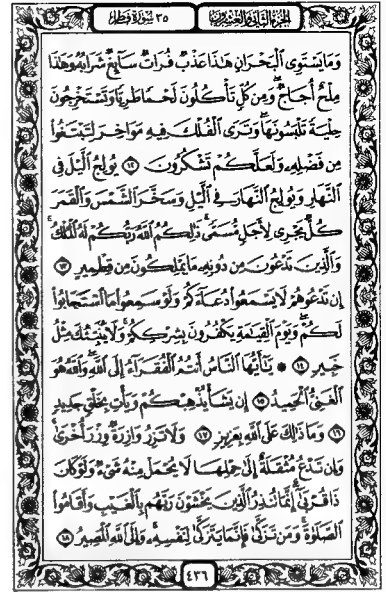 الجزء الثاني والعشرون ٣٥ سورة فاطر
وَمَا يَسْتَوِى الْبَحْرَانِ هَٰذَا عَذْبٌ فُرَاتٌ سَآئِغٌ شَرَابُهُۥ وَهَٰذَا
مِلْحٌ أُجَاجٌ ۖ وَمِن كُلٍّ تَأْكُلُونَ لَحْمًا طَرِيًّا وَتَسْتَخْرِجُونَ
حِلْيَةً تَلْبَسُونَهَا ۖ وَتَرَى الْفُلْكَ فِيهِ مَوَاخِرَ لِتَبْتَغُوا۟
مِن فَضْلِهِۦ وَلَعَلَّكُمْ تَشْكُرُونَ ١٢ يُولِجُ الَّيْلَ فِى
النَّهَارِ وَيُولِجُ النَّهَارَ فِى الَّيْلِ وَسَخَّرَ الشَّمْسَ وَالْقَمَرَ
كُلٌّ يَجْرِى لِأَجَلٍ مُّسَمًّى ۚ ذَٰلِكُمُ اللَّهُ رَبُّكُمْ لَهُ الْمُلْكُ ۚ
وَالَّذِينَ تَدْعُونَ مِن دُونِهِۦ مَا يَمْلِكُونَ مِن قِطْمِيرٍ ١٣
إِن تَدْعُوهُمْ لَا يَسْمَعُوا۟ دُعَآءَكُمْ وَلَوْ سَمِعُوا۟ مَا اسْتَجَابُوا۟
لَكُمْ ۖ وَيَوْمَ الْقِيَٰمَةِ يَكْفُرُونَ بِشِرْكِكُمْ ۚ وَلَا يُنَبِّئُكَ مِثْلُ
خَبِيرٍ ١٤ ۞ يَٰٓأَيُّهَا النَّاسُ أَنتُمُ الْفُقَرَآءُ إِلَى اللَّهِ ۖ وَاللَّهُ هُوَ
الْغَنِىُّ الْحَمِيدُ ١٥ إِن يَشَأْ يُذْهِبْكُمْ وَيَأْتِ بِخَلْقٍ جَدِيدٍ
١٦ وَمَا ذَٰلِكَ عَلَى اللَّهِ بِعَزِيزٍ ١٧ وَلَا تَزِرُ وَازِرَةٌ وِزْرَ أُخْرَىٰ ۚ
وَإِن تَدْعُ مُثْقَلَةٌ إِلَىٰ حِمْلِهَا لَا يُحْمَلْ مِنْهُ شَىْءٌ وَلَوْ كَانَ
ذَا قُرْبَىٰٓ ۗ إِنَّمَا تُنذِرُ الَّذِينَ يَخْشَوْنَ رَبَّهُم بِالْغَيْبِ وَأَقَامُوا۟
الصَّلَوٰةَ ۚ وَمَن تَزَكَّىٰ فَإِنَّمَا يَتَزَكَّىٰ لِنَفْسِهِۦ ۚ وَإِلَى اللَّهِ الْمَصِيرُ ١٨
٤٣٦